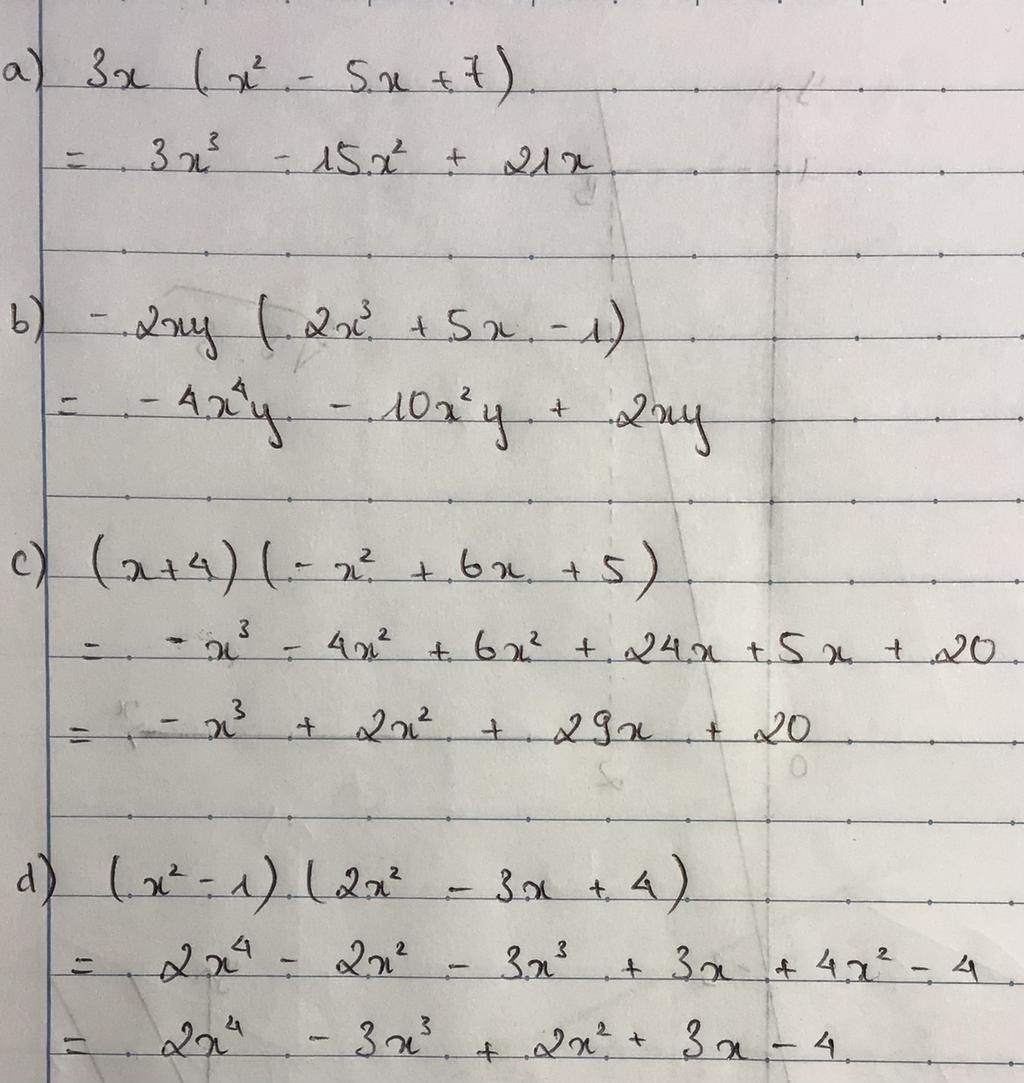 a) 3x (x² - 5x + 7)
= 3x³ - 15x² + 21x
b) - 2xy (2x³ + 5x - 1)
= - 4x⁴y - 10x²y + 2xy
c) (x+4) (- x² + 6x + 5)
= - x³ - 4x² + 6x² + 24x + 5x + 20
= - x³ + 2x² + 29x + 20
d) (x² - 1) (2x² - 3x + 4)
= 2x⁴ - 2x² - 3x³ + 3x + 4x² - 4
= 2x⁴ - 3x³ + 2x² + 3x - 4